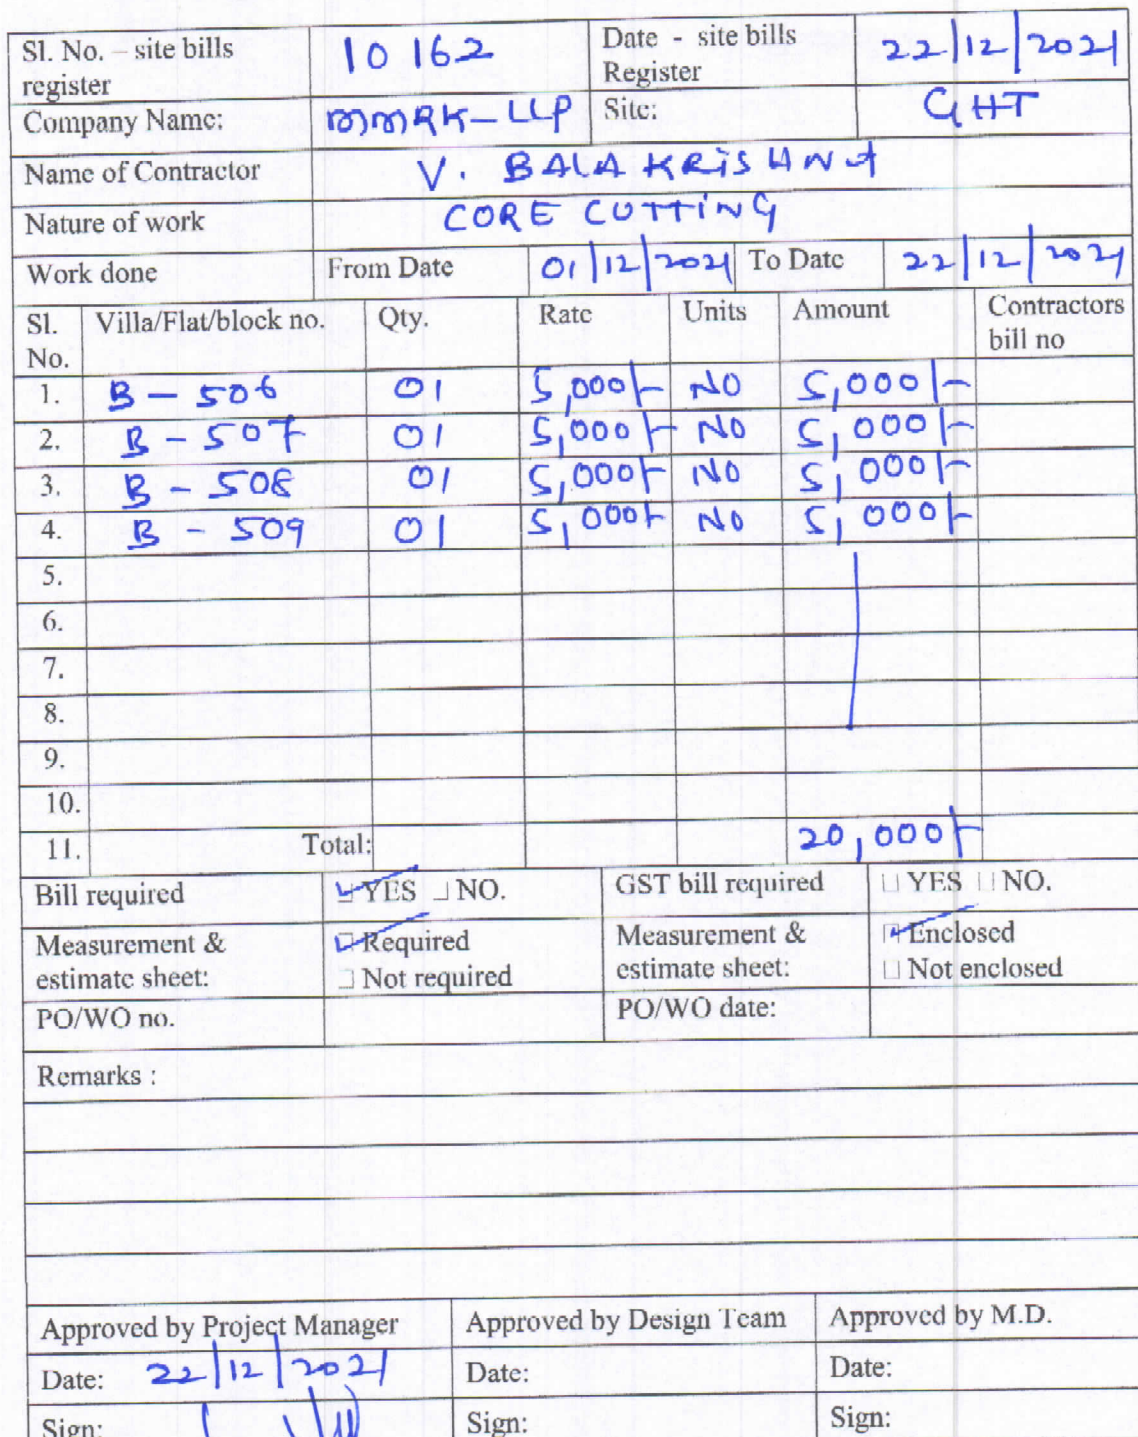 Sl. No. – site bills register 10 162 Date - site bills Register 22/12/2021
Company Name: MMRK-LLP Site: GHT
Name of Contractor V. BALA KRISHNA
Nature of work CORE CUTTING
Work done From Date 01/12/2021 To Date 22/12/2021
Sl. No. Villa/Flat/block no. Qty. Rate Units Amount Contractors bill no
1. B - 506 01 5,000/- NO 5,000/-
2. B - 507 01 5,000/- NO 5,000/-
3. B - 508 01 5,000/- NO 5,000/-
4. B - 509 01 5,000/- NO 5,000/-
5.
6.
7.
8.
9.
10.
11. Total: 20,000/-
Bill required ☑ YES ☐ NO. GST bill required ☐ YES ☐ NO.
Measurement & estimate sheet: ☑ Required ☐ Not required Measurement & estimate sheet: ☑ Enclosed ☐ Not enclosed
PO/WO no. PO/WO date:
Remarks :
Approved by Project Manager Approved by Design Team Approved by M.D.
Date: 22/12/2021 Date: Date:
Sign: Sign: Sign: